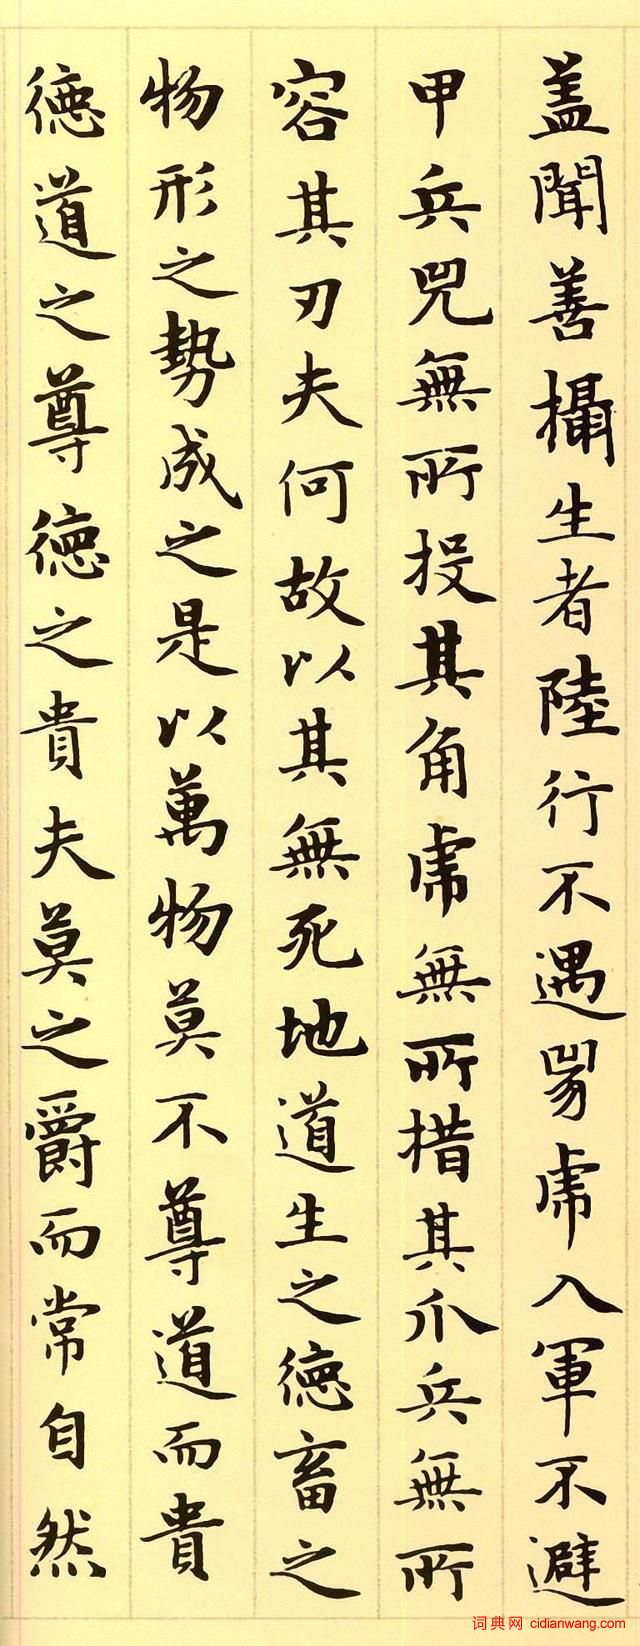 盖聞善攝生者陸行不遇兕虎入軍不避
甲兵兕無所投其角虎無所措其爪兵無所
容其刃夫何故以其無死地道生之德畜之
物形之勢成之是以萬物莫不尊道而貴
德道之尊德之貴夫莫之爵而常自然
词典网 cidianwang.com